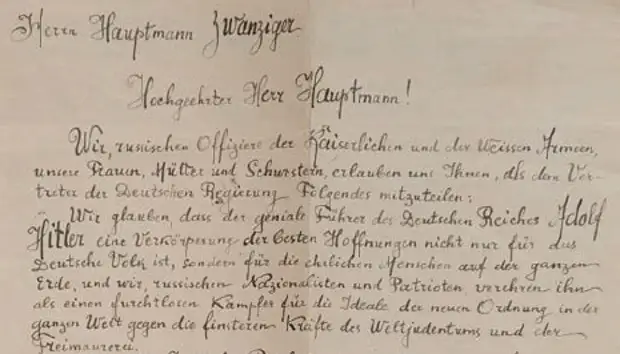 Herrn Hauptmann Zwanziger
Hochgeehrter Herr Hauptmann!
Wir, russischen Offiziere der Kaiserlichen und der Weissen Armeen,
unsere Frauen, Mütter und Schwestern, erlauben uns Ihnen, als dem Ver-
treter der Deutschen Regierung Folgendes mitzuteilen:
Wir glauben, dass der geniale Führer des Deutschen Reiches Adolf
Hitler eine Verkörperung der besten Hoffnungen nicht nur für das
Deutsche Volk ist, sondern für die ehrlichen Menschen auf der ganzen
Erde, und wir, russischen Nazionalisten und Patrioten, verehren ihn
als einen furchtlosen Kämpfer für die Ideale der neuen Ordnung in der
ganzen Welt gegen die finsteren Kräfte des Weltjudentums und der
Freimaurerei.